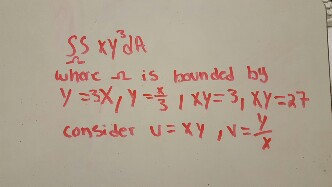 ∬_Ω xy³dA
where Ω is bounded by
y=3x, y=x/3, xy=3, xy=27
consider u=xy, v=y/x